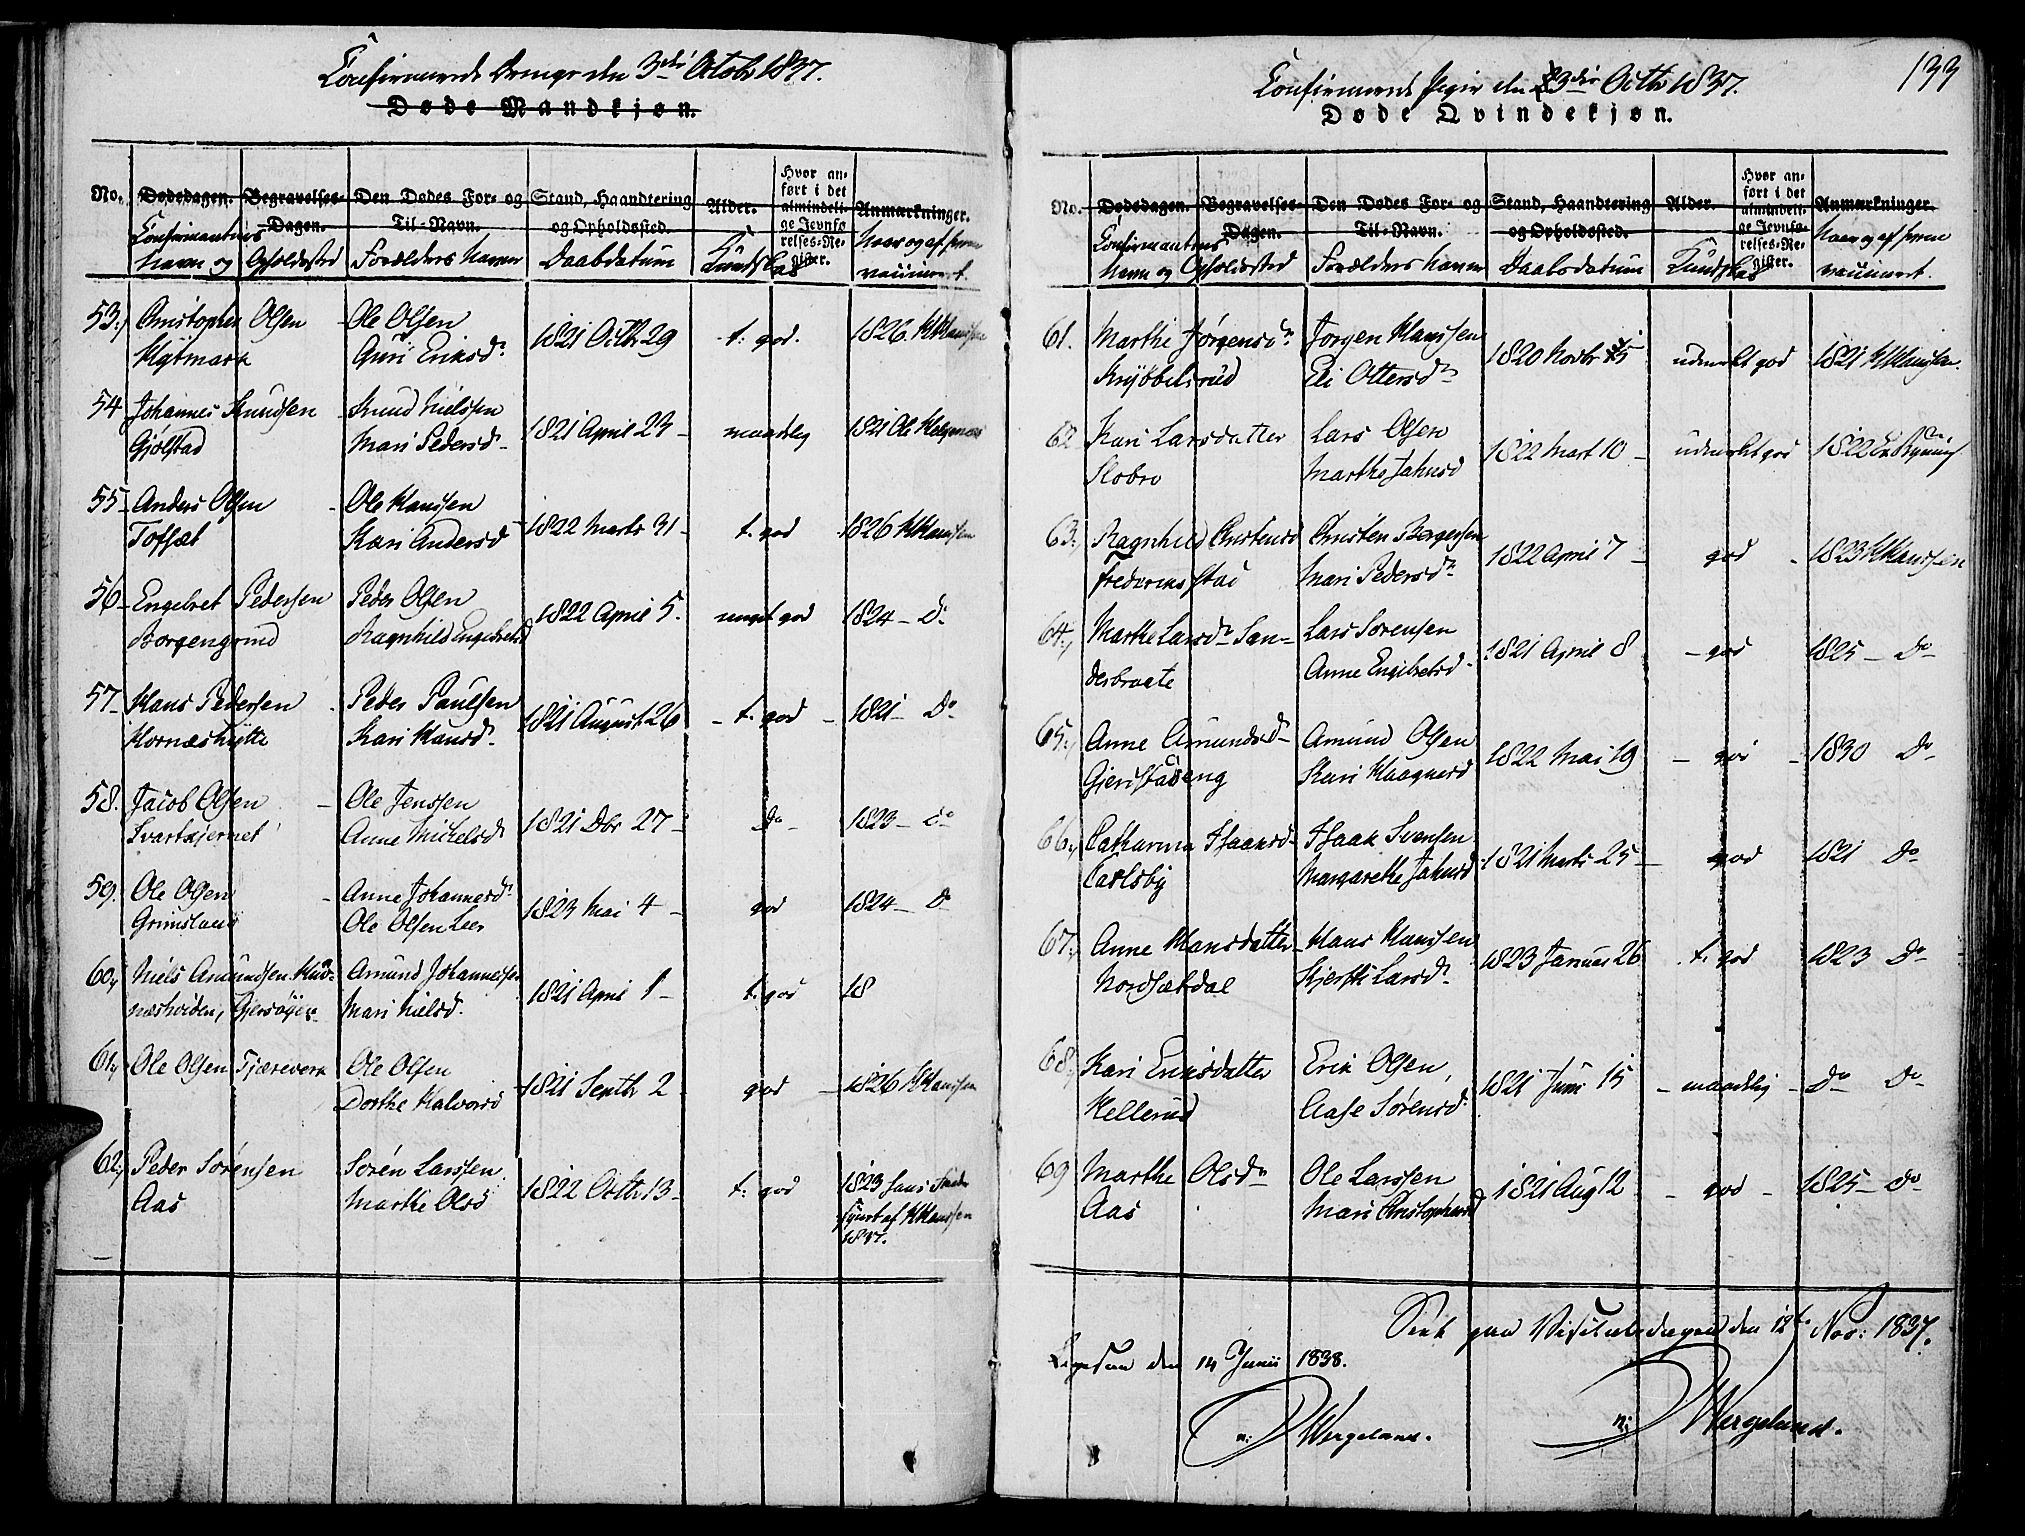 Confirmerede Drenge den 3die Octobr 1837.
Døde Mandkjøn.
No. Dødsdagen. Begravelses-Dagen. Den Dødes For- og Til-Navn. Stand, Haandtering og Opholdssted. Alder. Hvor anført i det almindelige Jevnførelses-Register. Anmærkninger.
Confirmantens Navn og Opholdssted Forældres Navne Daabsdatum Kundskab Naar og af hvem vaccineret.
53. Christopher Olsen Ole Olsen 1821 Octbr 29 t. god. 1826. HHanssen
Guri Eriksd.
54 Johannes Knudsen Knud Nielssen 1821 April 23 maadelig 1821 Ole
Gjølstad Mari Pedersd
55 Anders Olsen Ole Hanssen 1822 Marts 31 t. god 1826 HHanssen
Tofsæt Kari Andersd
56 Engebret Pedersen Peder Olsen 1822 April 5. meget god 1824 Do
Borgengrind Ragnhild Engebretsd
57 Hans Pedersen Peder Paulsen 1821 August 26 t. god 1821 Do
Hornæshytte Kari Hansd.
58. Jacob Olsen Ole Jenssen 1821 Dbr 27 Do 1823 do
Svartkjernet Anne Mickelsd
59. Ole Olsen Anne Johannesd. 1823 Mai 4 god 1824 do
Grimsland Ole Olsen Leer
60. Niels Amundsen Amund Johannessen 1821 April 1 t. god 18
Mari Nielsd.
61. Ole Olsen Tjæreverk Ole Olsen 1821 Septbr 2 god 1826 HHanssen
Dorthe Halvorsd
62. Peder Sørensen Søren Larssen 1822 Octbr 13 t. god 1823
Aas Marthe Olsd af HHanssen
1837.
133
Confirmerede Piger den 3die Octbr 1837.
Døde Qvindekjøn.
No. Dødsdagen. Begravelses-Dagen. Den Dødes For- og Til-Navn. Stand, Haandtering og Opholdssted. Alder. Hvor anført i det almindelige Jevnførelses-Register. Anmærkninger
Confirmantens Navn og Opholdssted Forældres Navne Daabsdatum Kundskab Naar og af hvem vaccineret.
61. Marthe Jørgensd. Jørgen Hanssen 1820 Novbr 5 udmerkt god 1821 HHanssen
Knybbelsrud Eli Ottersd.
62 Kari Larsdatter Lars Olsen 1822 Mart 10 udmerkt god 1822
Slobro Marthe Jahnsd
63. Ragnhild Christensd Christen Børgersen 1822 April 7 god 1823 HHanssen
Mari Pedersd.
64. Marthe Larsd. San- Lars Sørensen 1821 April 8 god 1825 Do
derbraate Anne Engebretsd.
65. Anne Amundsd Amund Olsen 1822 Mai 19 god 1830 Do
Gjerstadeng Kari Haagensd
66. Catharina Isaaksd. Isaak Svensen 1821 Marts 25 god 1821 Do
Carlsby Margarethe Jahnsd
67. Anne Hansdatter Hans Hanssen 1823 Januar 26 t. god 1823 Do
Nordsætdal Kjersti Larsd.
68. Kari Eriksdatter Erik Olsen 1821 Juni 15 maadelig Do Do
Hellerud Aase Sørensd.
69 Marthe Olsd. Ole Larssen 1821 Aug 12 god 1825 Do
Aas Mari Christophersd
Seet paa Visitatsdagen den 12te Nov: 1837.
den 14 Junii 1838.
n: Wergeland. n: Wergeland.